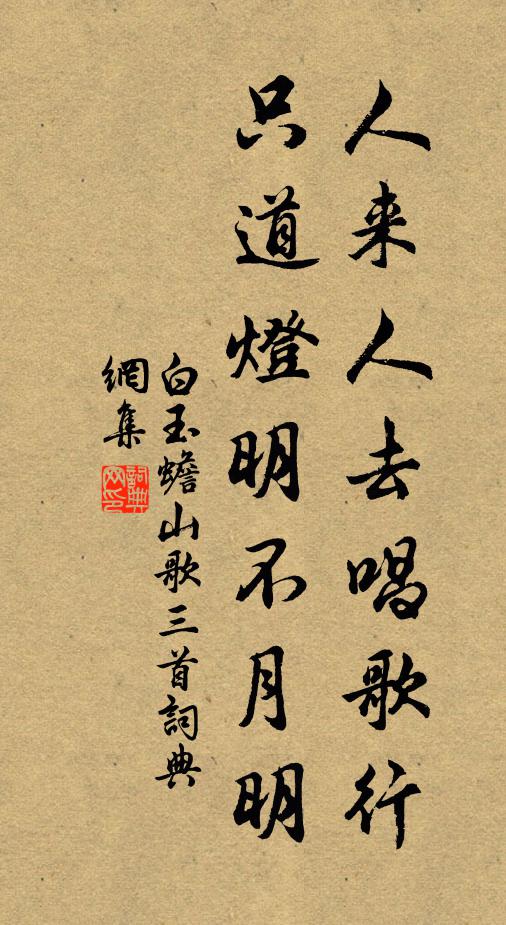 人来人去唱歌行
只道燈明不月明
白玉蟾山歌三首詞典
網集
詞典網印